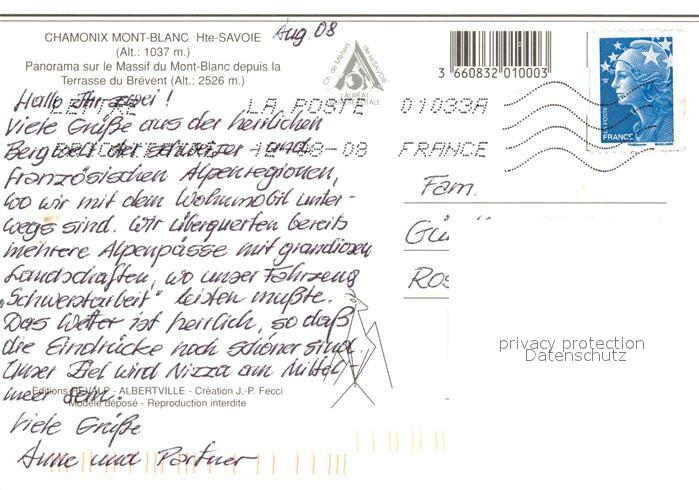 CHAMONIX MONT-BLANC Hte-SAVOIE
(Alt.: 1037 m.)
Panorama sur le Massif du Mont-Blanc depuis la
Terrasse du Brévent (Alt.: 2526 m.)
Aug. 08
Ch. de Métiers de la SAVOIE
LAURÉAT
3 660832 010003
LA POSTE 01033A
12-08-08 FRANCE
LA POSTE
FRANCE
Hallo Ihr zwei!
Viele Grüße aus der herrlichen
Bergwelt der schweizer und
französischen Alpenregionen,
wo wir mit dem Wohnmobil unter-
wegs sind. Wir überquerten bereits
mehrere Alpenpässe mit grandiosen
Landschaften, wo unser Fahrzeug
„Schwerstarbeit" leisten mußte.
Das Wetter ist herrlich, so daß
die Eindrücke noch schöner sind.
Unser Ziel wird Nizza am Mittel-
meer sein.
Viele Grüße
Anne und Partner
Fam.
Gü
Ros
privacy protection
Datenschutz
Editions REVALP - ALBERTVILLE - Création J.-P. Fecci
Modèle déposé - Reproduction interdite